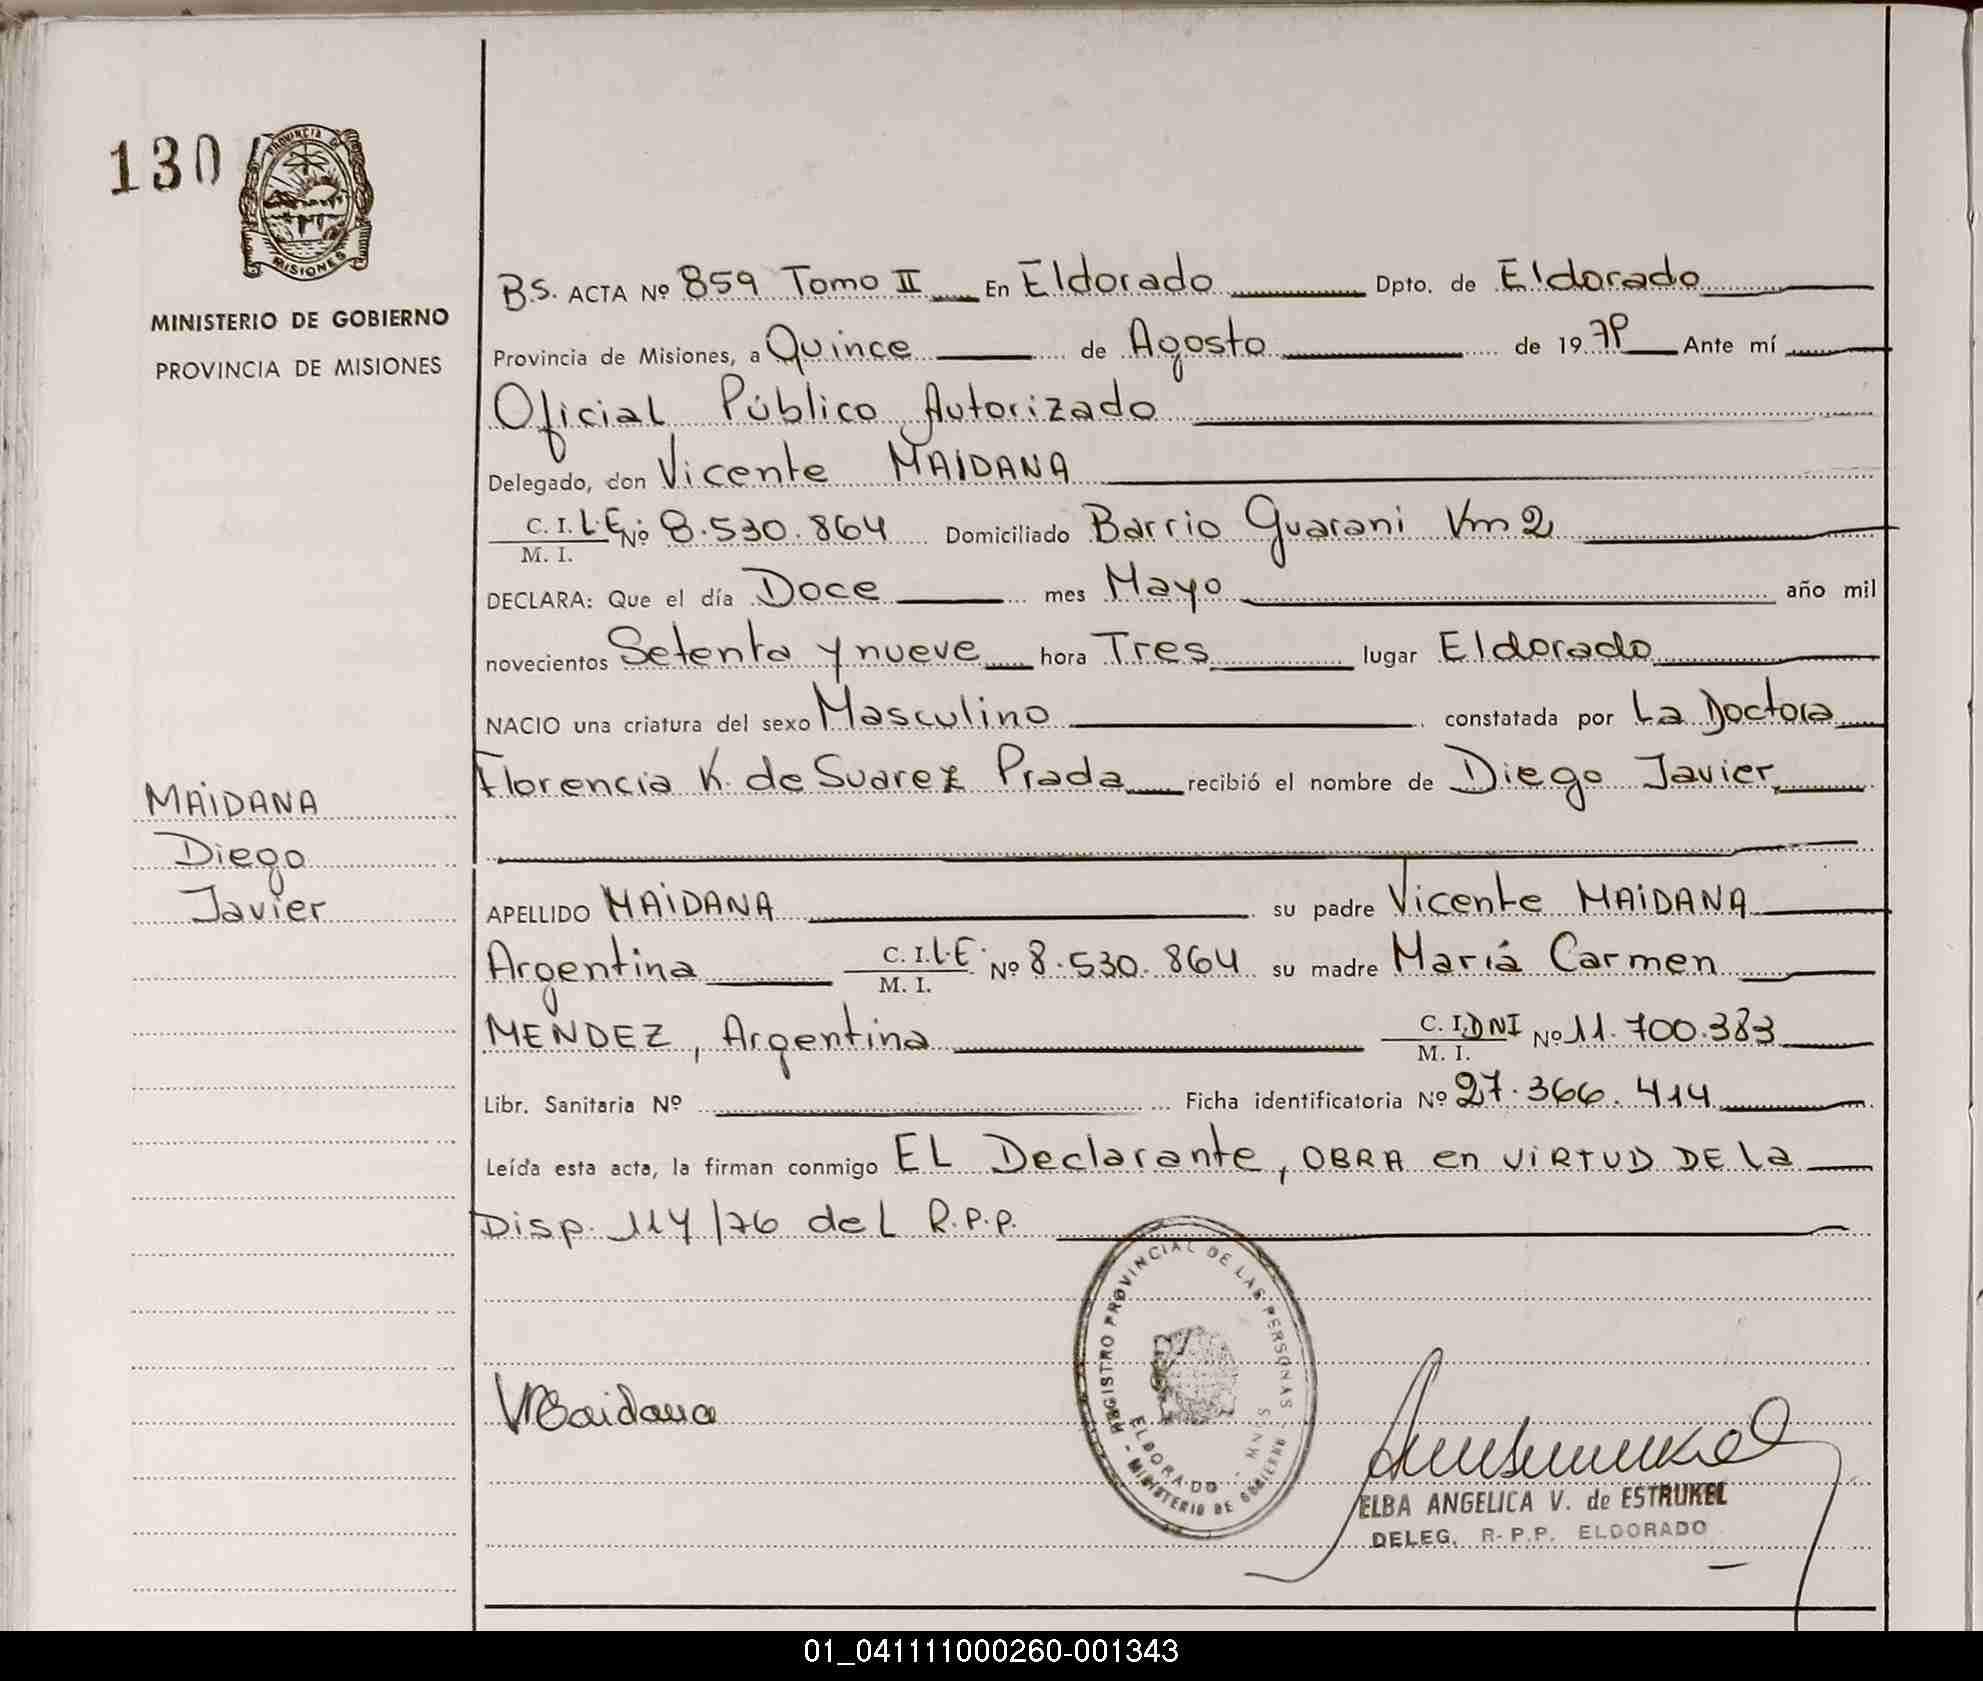 130
PROVINCIA DE
MISIONES
MINISTERIO DE GOBIERNO
PROVINCIA DE MISIONES
MAIDANA
Diego
Javier
BS. ACTA Nº 859 Tomo II En Eldorado Dpto. de Eldorado
Provincia de Misiones, a Quince de Agosto de 1979 Ante mí
Oficial Público Autorizado
Delegado, don Vicente MAIDANA
C. I. L.E. Nº 8.530.864 Domiciliado Barrio Guarani Km 2
M. I.
DECLARA: Que el día Doce mes Mayo año mil
novecientos Setenta y nueve hora Tres lugar Eldorado
NACIO una criatura del sexo Masculino constatada por La Doctora
Florencia K. de Suarez Prada recibió el nombre de Diego Javier
APELLIDO MAIDANA su padre Vicente MAIDANA
Argentina C. I. L.E. Nº 8.530.864 su madre Mariá Carmen
M. I.
MENDEZ, Argentina C. I. DNI Nº 11.700.383
M. I.
Libr. Sanitaria Nº Ficha identificatoria Nº 27.366.414
Leída esta acta, la firman conmigo EL Declarante, OBRA en VIRTUD DE La
Disp. 114/76 del R.P.P.
REGISTRO PROVINCIAL DE LAS PERSONAS
ELDORADO - MNES
- MINISTERIO DE GOBIERNO
VMaidana
ELBA ANGELICA V. de ESTRUKEL
DELEG. R-P.P. ELDORADO
01_041111000260-001343